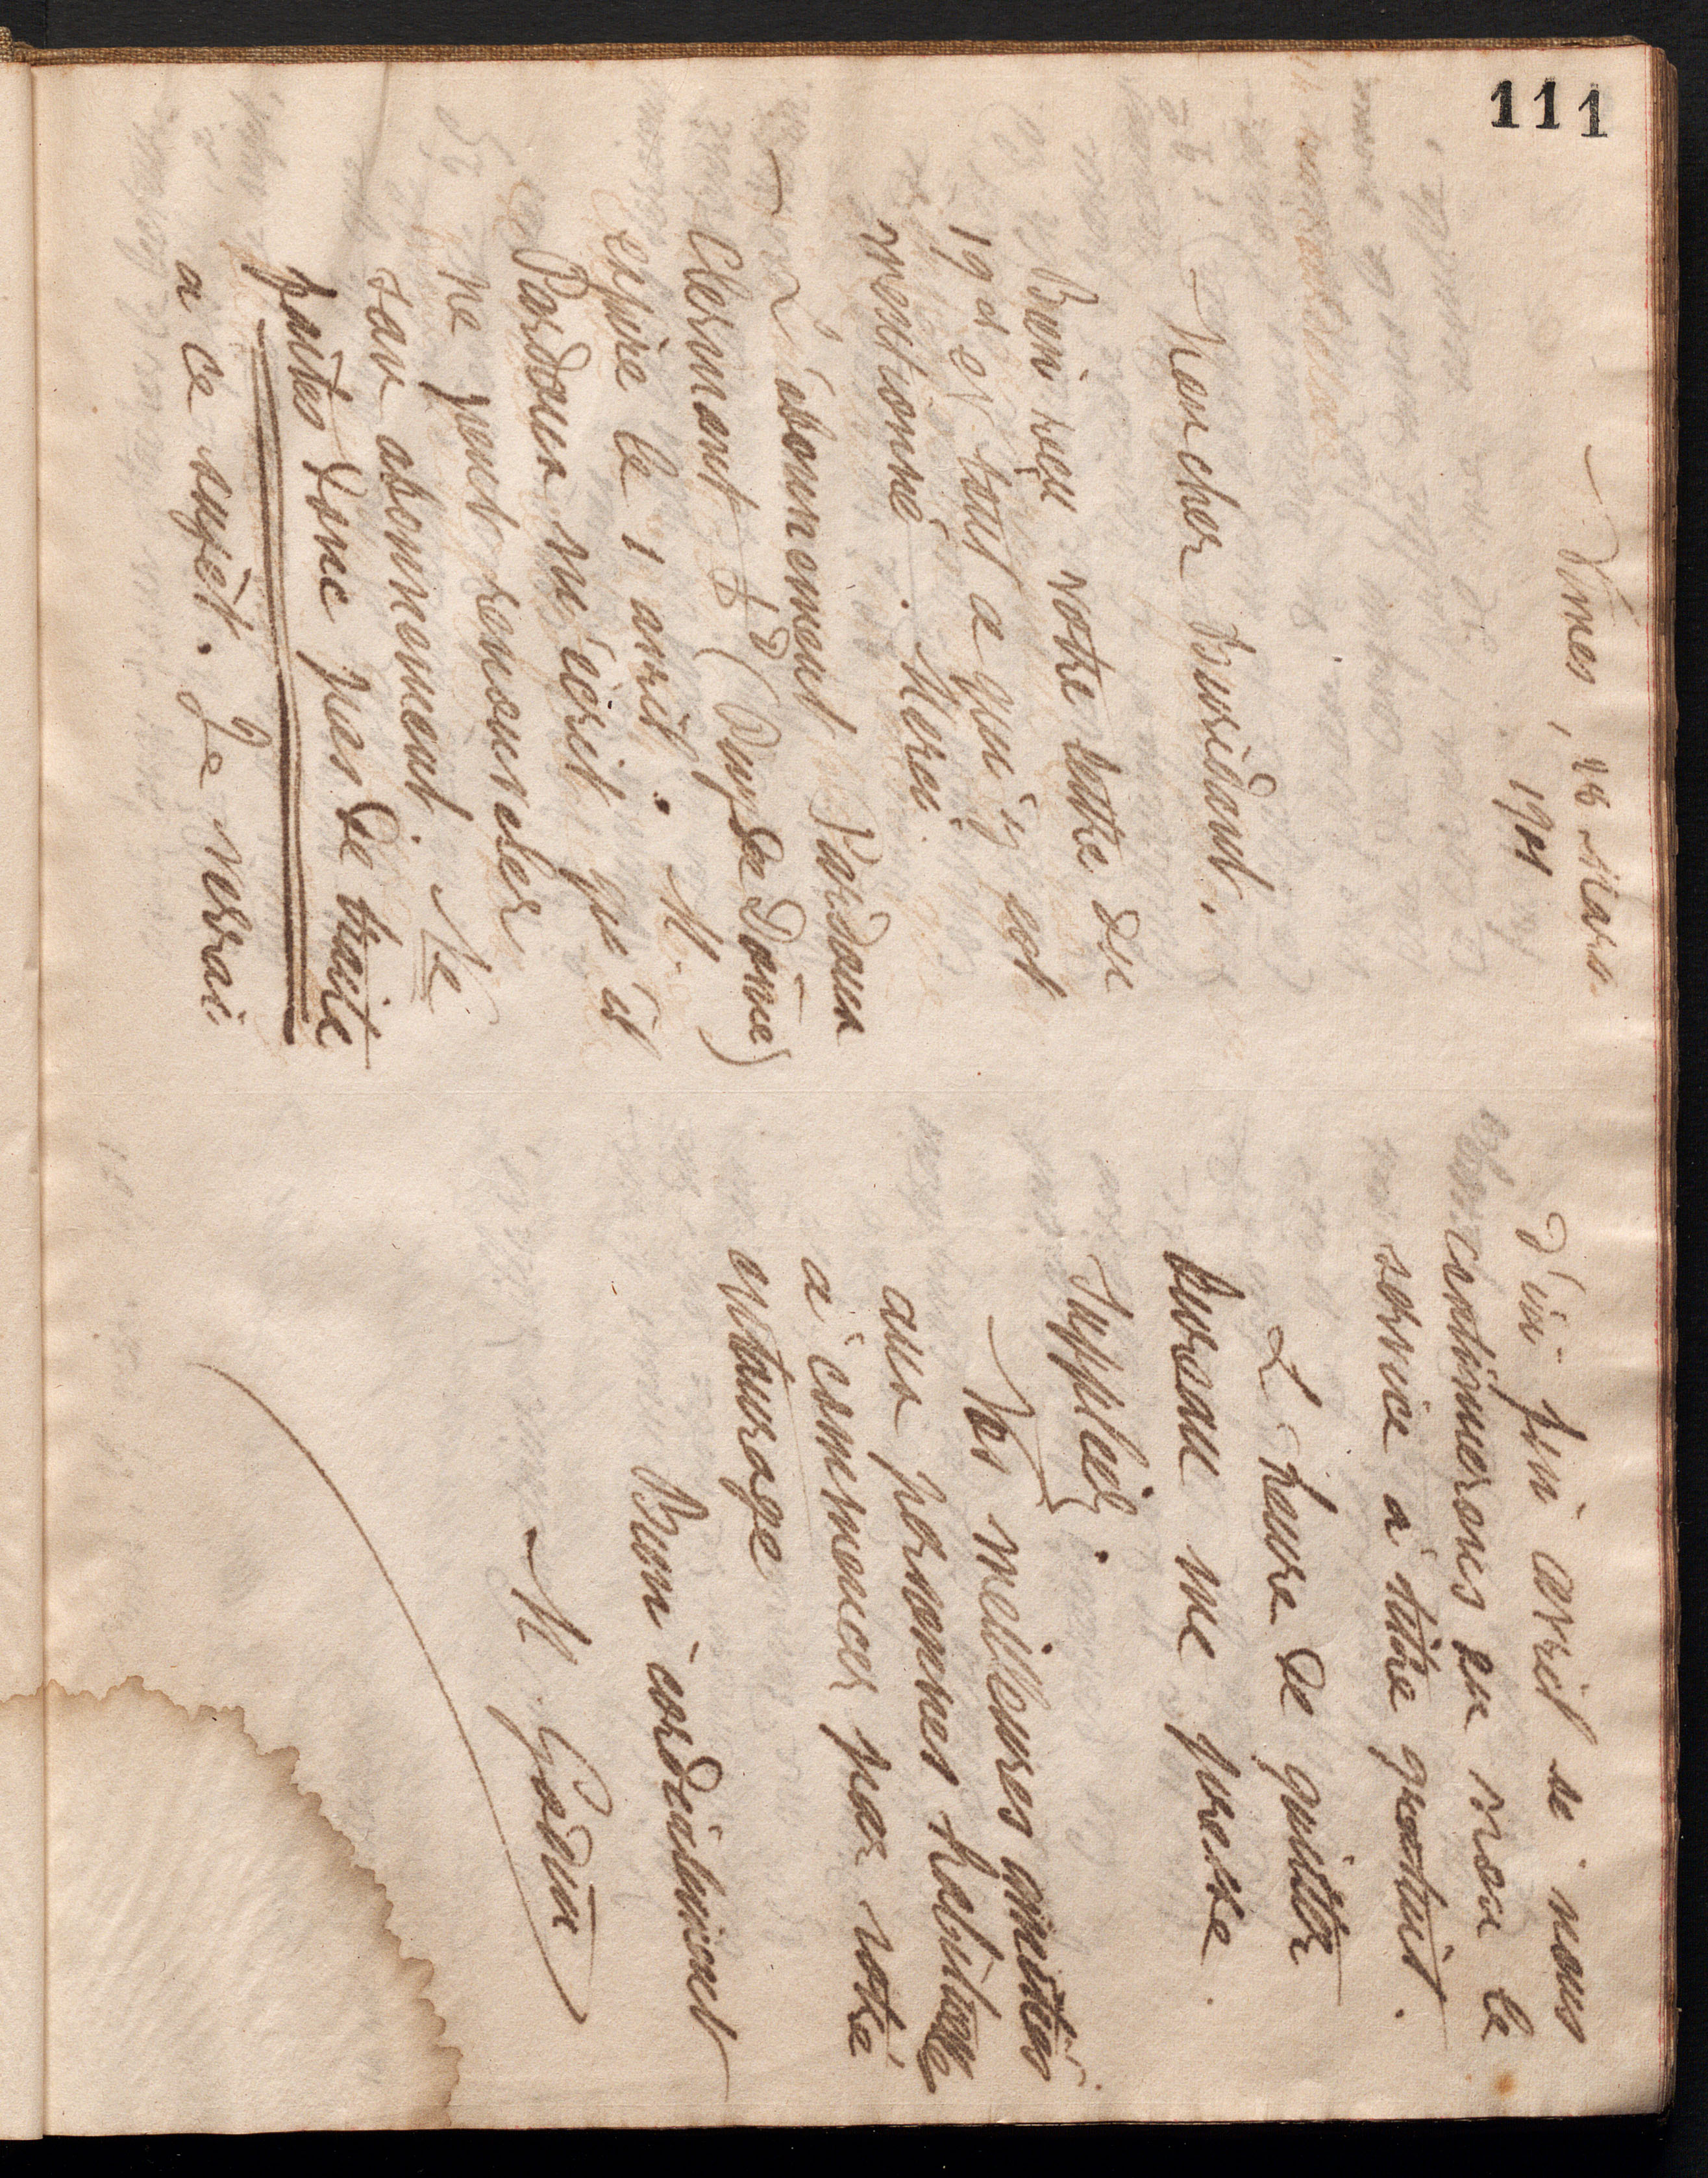 111
Nîmes, 26 Mars
1901
Mon cher Buridant,
Bien reçu votre lettre du
19 et tout ce qui y est
mentionné. Merci.
L'abonnement Pardoux
Clermont Fd (Puy de Dôme)
expire le 1 avril. M.
Pardoux m'écrit qu'il
ne peut renouveler
son abonnement. Ne
faites donc pas de traite
a ce sujet. Je verrai
d'ici fin avril si nous
continuerons ou non le
service à titre gratuit.
L'heure de quitter
bureau me presse.
Suppléez.
Nos meilleures amitiés
aux personnes habituelles
à commencer par votre
entourage
Bien cordialement
M. Godin